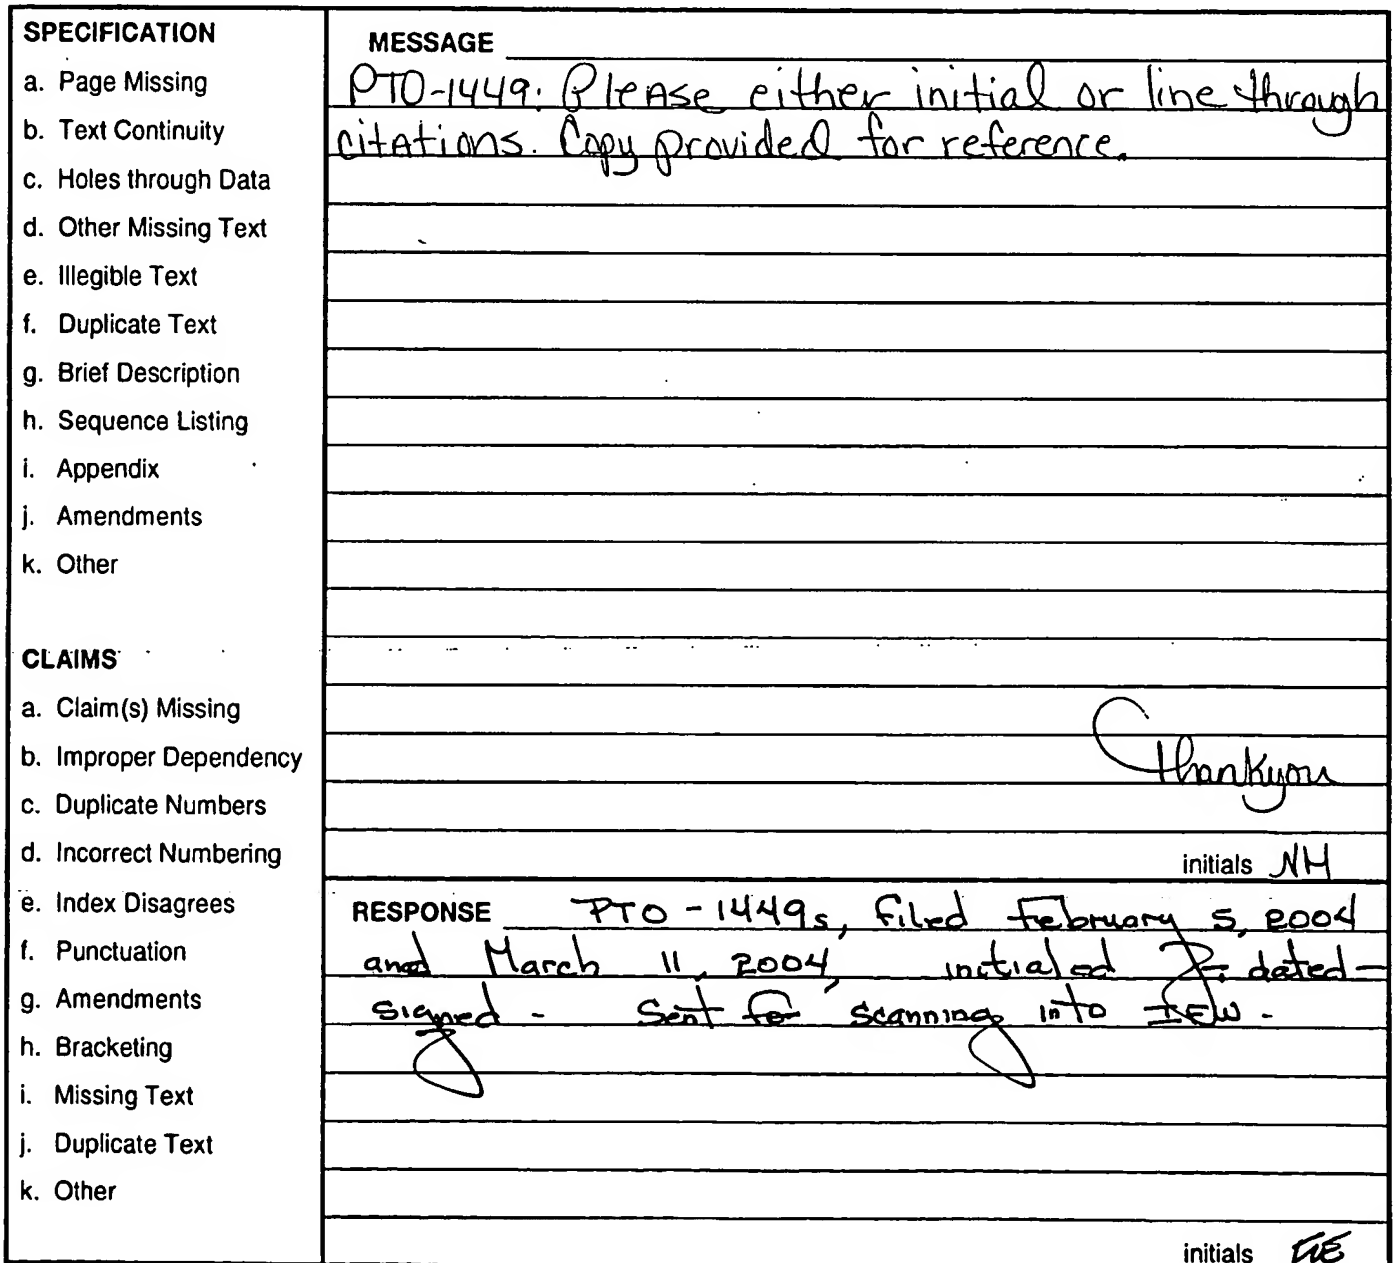 SPECIFICATION
a. Page Missing
b. Text Continuity
c. Holes through Data
d. Other Missing Text
e. Illegible Text
f. Duplicate Text
g. Brief Description
h. Sequence Listing
i. Appendix
j. Amendments
k. Other
CLAIMS
a. Claim(s) Missing
b. Improper Dependency
c. Duplicate Numbers
d. Incorrect Numbering
e. Index Disagrees
f. Punctuation
g. Amendments
h. Bracketing
i. Missing Text
j. Duplicate Text
k. Other
MESSAGE
PTO-1449: Please either initial or line through
citations. Copy provided for reference.
Thankyou
initials NH
RESPONSE PTO-1449s, filed February 5, 2004
and March 11, 2004, initialed dated-
signed - Sent for scanning into IFW -
initials